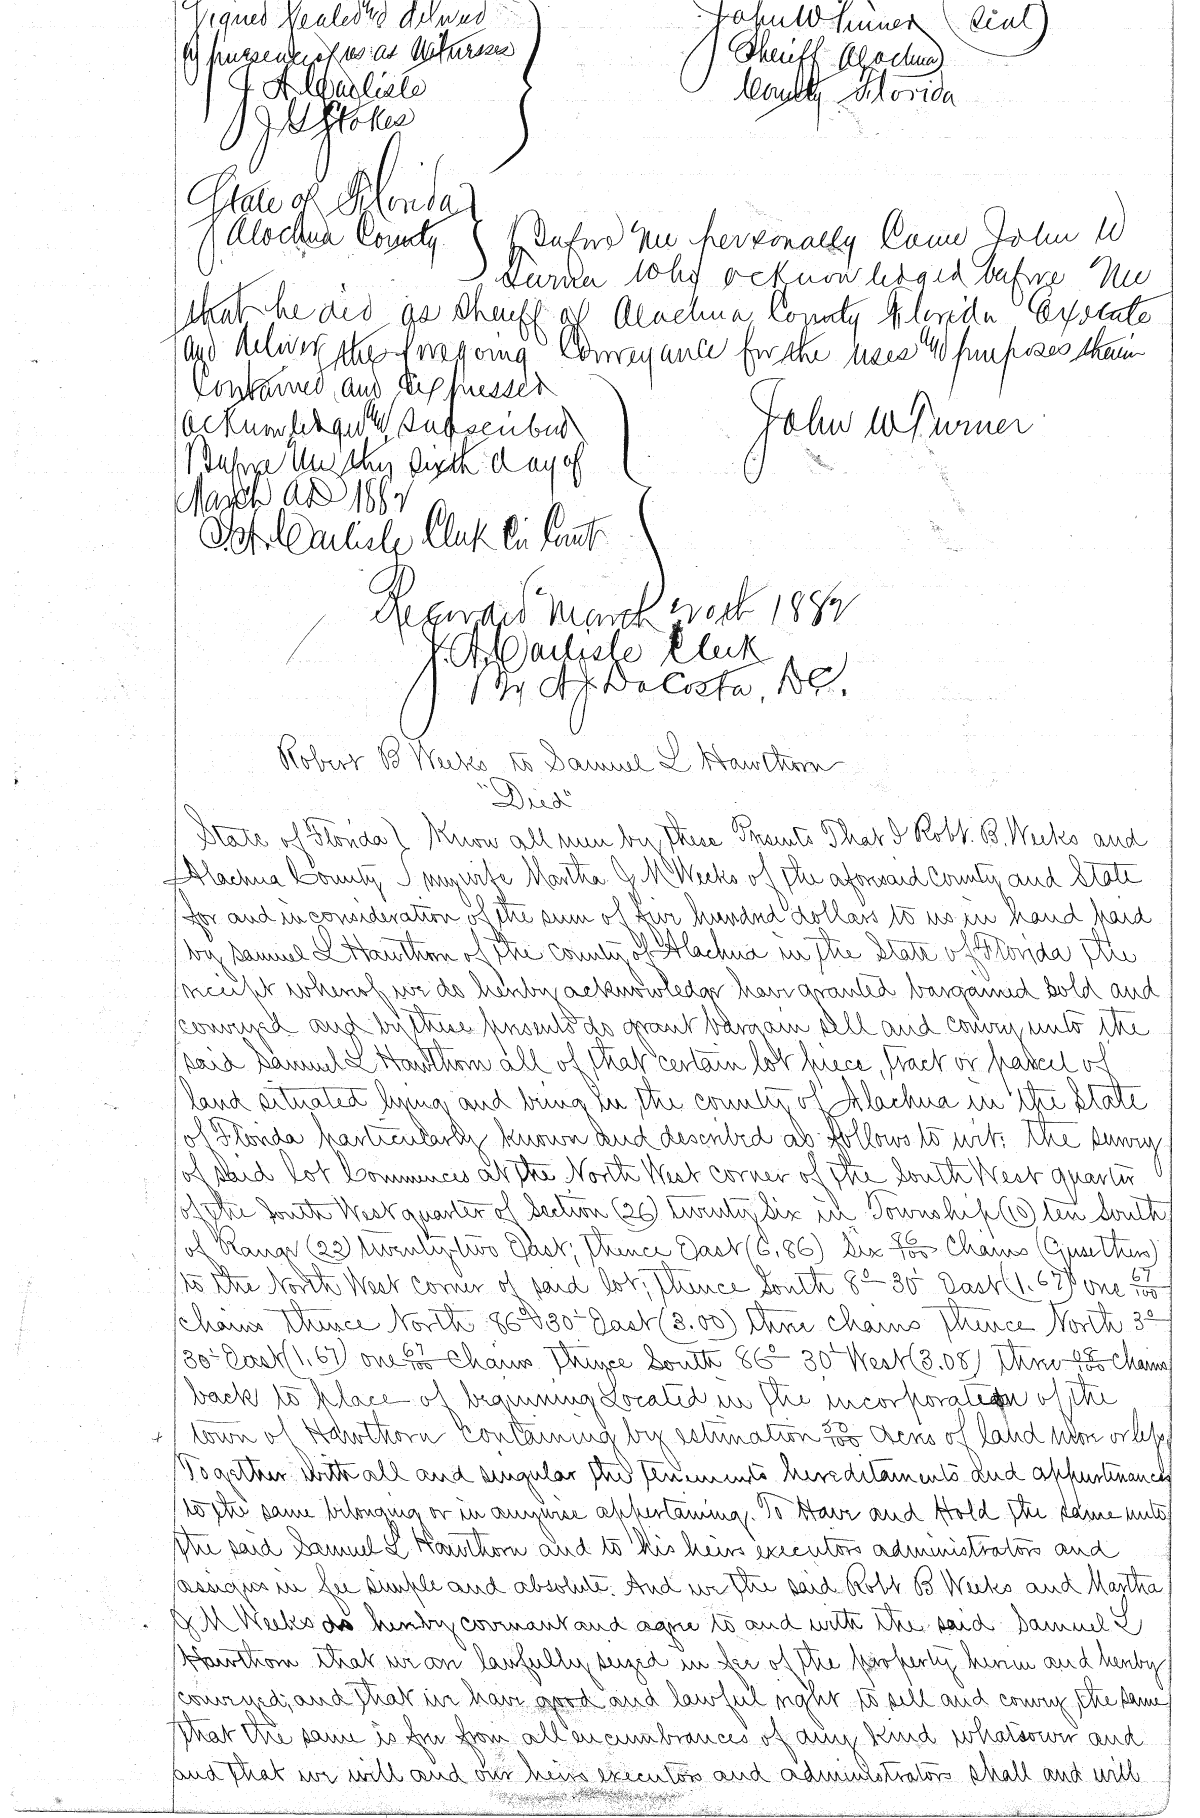 Signed Sealed and delivered
in presence of us as Witnesses
J A Carlisle
J G Stokes
John W Turner (Seal)
Sheriff Alachua
County Florida
State of Florida
Alachua County
Before me personally Came John W
Turner Who acknowledged before Me
that he did as Sheriff of Alachua County Florida Execute
And deliver the foregoing Conveyance for the uses and purposes therein
Contained and Expressed
acknowledged and Subscribed
Before Me this Sixth day of
March AD 1882
J. A. Carlisle Clerk Cir Court
John W Turner
Recorded March 1882
J. A. Carlisle Clerk
By A. J. DaCosta, D.C.
Robert B Weeks to Samuel L Hawthorn
"Died"
State of Florida Know all men by these Presents That I Robt. B. Weeks and
Alachua County my wife Martha J M Weeks of the aforesaid County and State
for and in consideration of the sum of five hundred dollars to us in hand paid
by Samuel L Hawthorn of the county of Alachua in the State of Florida the
receipt whereof we do hereby acknowledge have granted bargained sold and
conveyed and by these presents do grant bargain sell and convey unto the
said Samuel L Hawthorn all of that certain lot piece, tract or parcel of
land situated lying and being in the county of Alachua in the State
of Florida particularly known and described as follows to wit: The survey
of said lot Commences at the North West corner of the South West quarter
of the South West quarter of Section (26) twenty Six in Township (10) ten South
of Range (22) twenty-two East; thence East (6.86) Six 86/100 Chains (Gunthers)
to the North West corner of said lot; thence South 8°-30' East (1.67) one 67/100
chains thence North 86° 30' East (3.00) three chains thence North 3°
30' East (1.67) one 67/100 Chains thence South 86° 30' West (3.08) three 08/100 chains
back to place of beginning Located in the incorporation of the
town of Hawthorn containing by estimation 50/100 acres of land more or less,
Together with all and singular the tenements hereditaments and appurtenances
to the same belonging or in anywise appertaining. To Have and Hold the same unto
the said Samuel L Hawthorn and to his heirs executors administrators and
assigns in fee simple and absolute. And we the said Robt B Weeks and Martha
J M Weeks do hereby covenant and agree to and with the said Samuel L
Hawthorn that we are lawfully seized in fee of the property herein and hereby
conveyed, and that we have good and lawful right to sell and convey the same
that the same is free from all encumbrances of any kind whatsoever and
and that we will and our heirs executors and administrators shall and will